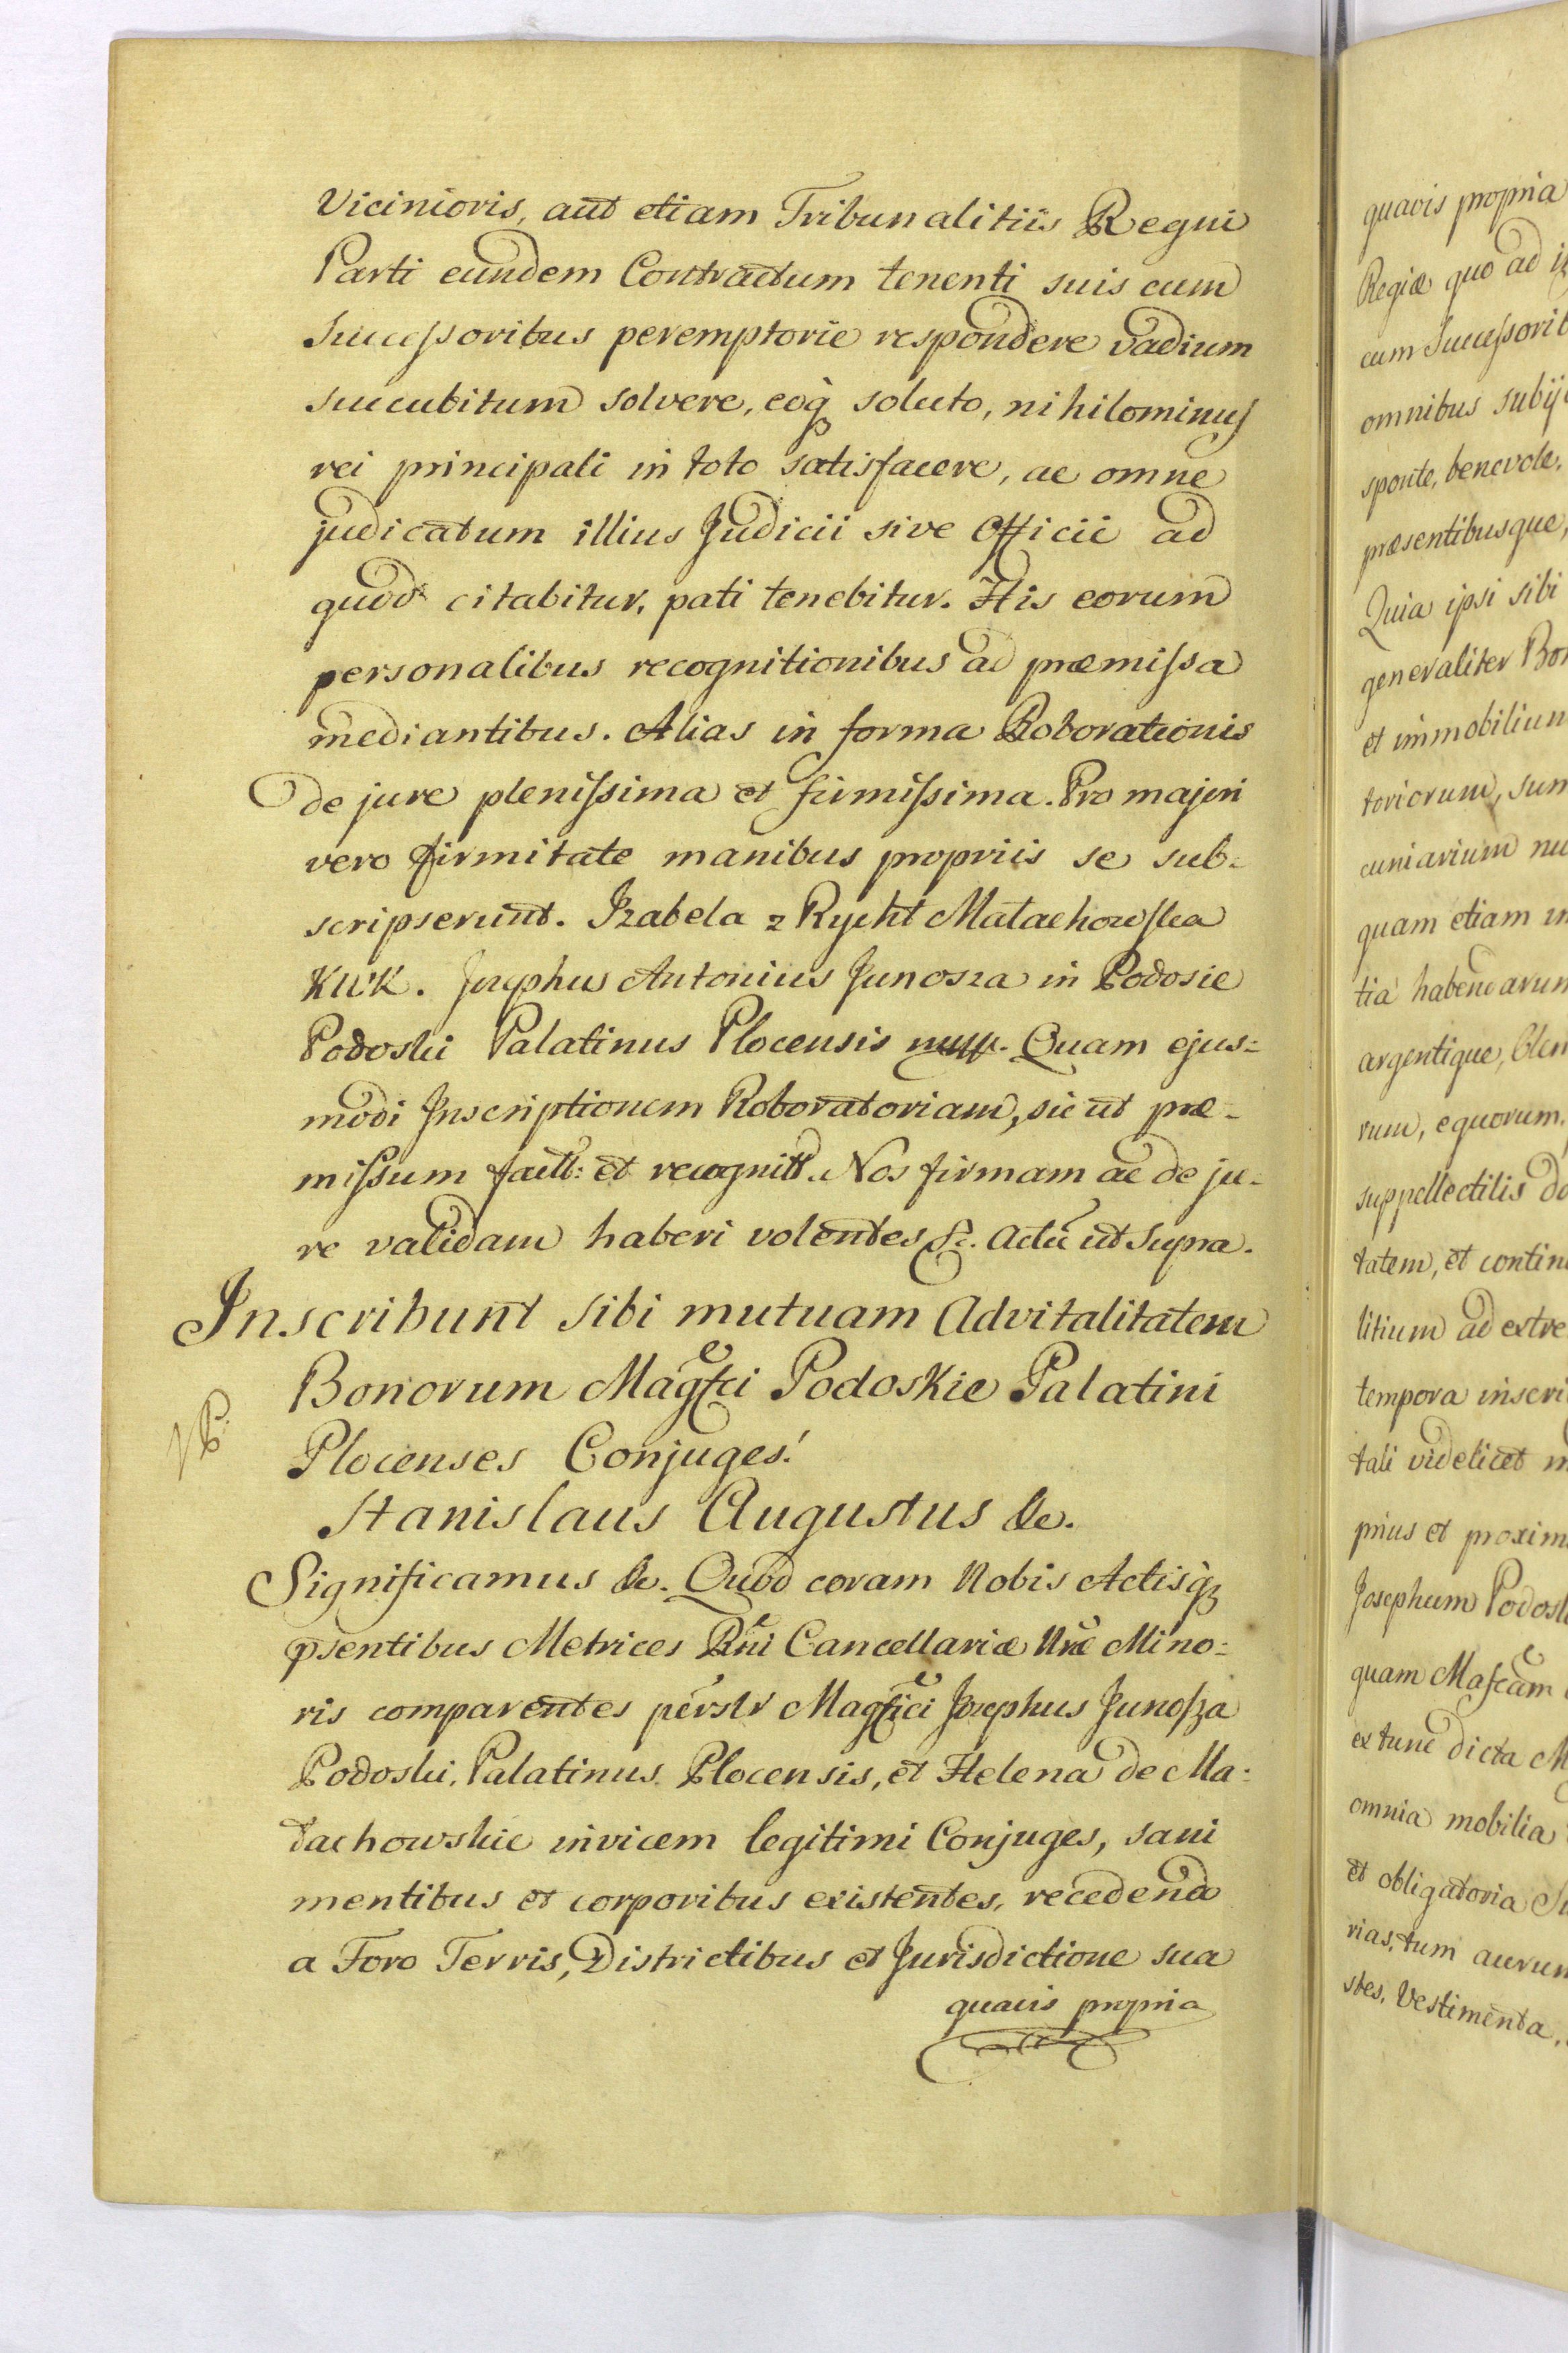 Vicinioris, aut etiam Tribunalitiis Regni
Parti eundem Contractum tenenti suis cum
Successoribus peremptorie respondere vadium
succubitum solvere, eoq̀ soluto, nihilominus
rei principali in toto satisfacere, ac omne
judicatum illius Judicii sive Officii ad
quod citabitur, pati tenebitur. His eorum
personalibus recognitionibus ad præmissa
mediantibus. Alias in forma Roborationis
de jure plenissima et firmissima. Pro majori
vero firmitate manibus propriis se sub=
scripserunt. Izabela z Rycht Małachowska
KWK. Josephus Antonius Junosza in Podosie
Podoski Palatinus Plocensis mpp. Quam ejus=
modi Inscriptionem Roboratoriam, sic ut præ=
missum factt: et recognitt. Nos firmam ac de ju=
re validam haberi volentes &c. Actũ ut supra.
Inscribunt sibi mutuam Advitalitatem
Bonorum Magfci Podoskie Palatini
Plocenses Conjuges.
Stanislaus Augustus &c.
Significamus &c. Quod coram Nobis Actisq̀
psentibus Metrices Rni Cancellariæ Nræ Mino=
ris comparentes perslr Magfici Josephus Junosza
Podoski, Palatinus Plocensis, et Helena de Ma=
łachowskie invicem legitimi Conjuges, sani
mentibus et corporibus existentes, recedendo
a Foro Terris, Districtibus et Jurisdictione sua
quavis propria
quavis propria
Regiæ quo ad
cum Successorib
omnibus subij
sponte, benevole,
præsentibusque,
Quia ipsi sibi
generaliter Bo
et immobilium
toriorum, sum
cuniarium nu
quam etiam in
tia habendarum
argentique,
rum, equorum,
suppellectilis do
tatem, et contin
litium ad extre
tempora inscri
tali videlicet m
prius et proxim
Josephum Podosk
quam Mafcam
ex tunc dicta M
omnia mobilia
et obligatoria Su
rias, tum aurum
stes, Vestimenta,